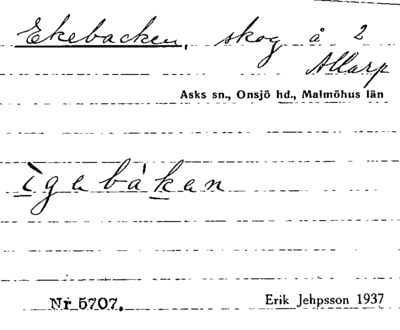 Ekebacken, skog å 2
Allarp
Asks sn., Onsjö hd., Malmöhus län
ìgabákan
Nr 5707.
Erik Jehpsson 1937